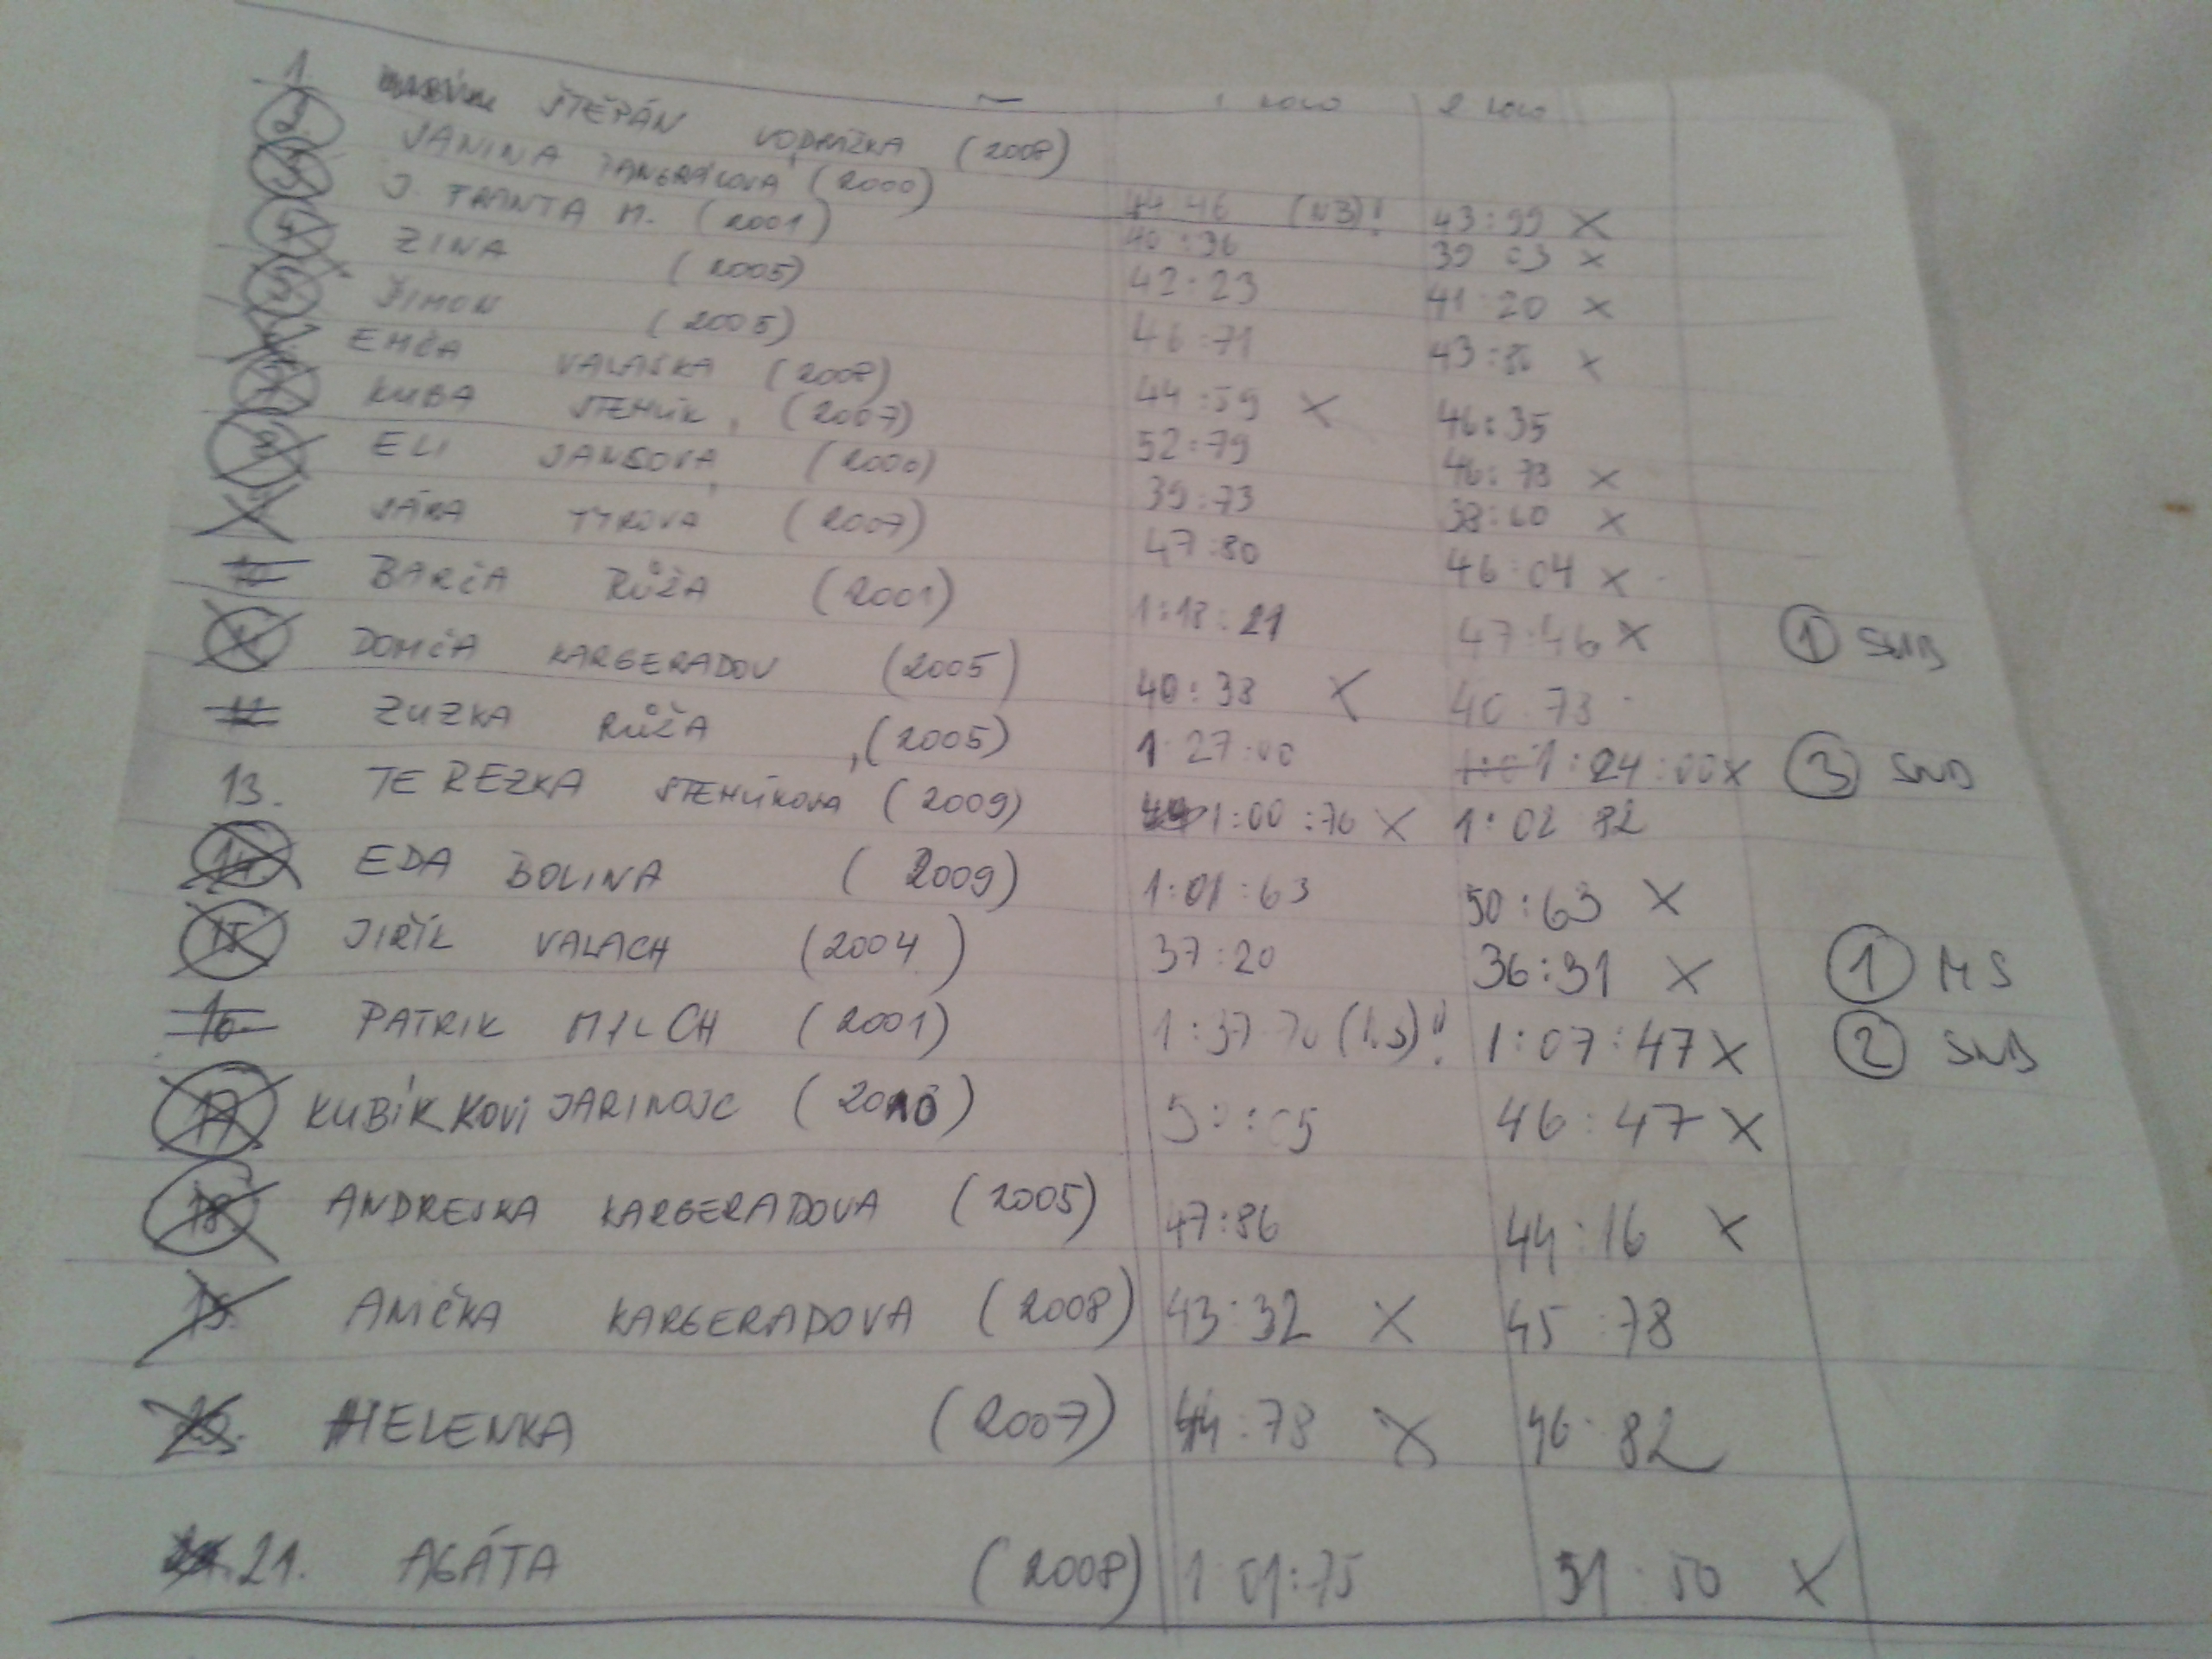 KOLO 2 KOLO
1. ŠTĚPÁN VODRÁŽKA (2008) 44 46 (N3)! 43:99 X
2. JANINA (2000) 40:36 39 03 X
3. J. FRANTA M. (2001) 42:23 41:20 X
4. ZINA (2005) 46:71 43:86 X
5. ŠIMON (2005) 44:59 X 46:35
EMČA VALAŠKA (2008) 52:79 46:73 X
KUBA STEHLÍK (2007) 39:73 38:60 X
8. ELI JANSOVÁ (2000) 47:80 46:04 X
SÁRA TYROVÁ (2007) 1:18:21 47:46 X ① SNB
10 BARČA RŮŽA (2001) 40:38 X 40 73
DOMČA KARGERADOV (2005) 1 27:00 1:24:00 X ③ SNB
12 ZUZKA RŮŽA (2005) 1:00:76 X 1:02 82
13. TEREZKA STEHLÍKOVA (2009)
14. EDA BOLINA (2009) 1:01:63 50:63 X
15. JIŘÍK VALACH (2004) 37:20 36:31 X ① MS
16. PATRIK MILCH (2001) 1:37 70 (1.S)!! 1:07:47 X ② SNB
17 KUBÍK KOVI JARINOJC (2010) 46:47 X
18. ANDREJKA KARGERADOVA (2005) 47:86 44:16 X
19. ANIČKA KARGERADOVA (2008) 43:32 X 45:78
20. HELENKA (2007) 44:78 X 46 82
21. AGÁTA (2008) 1 01:75 51:50 X